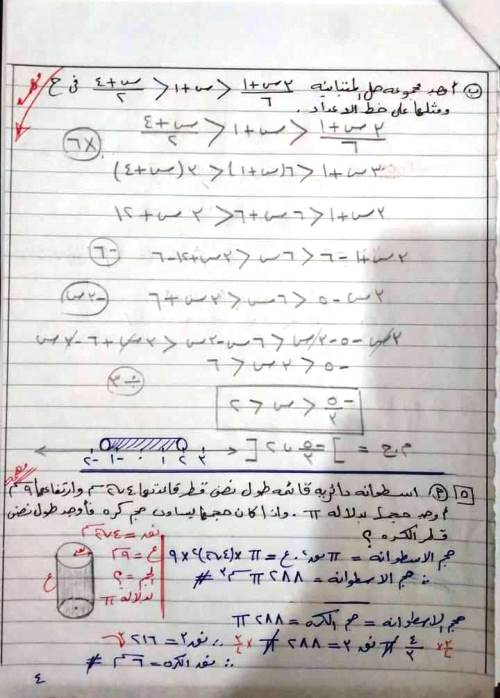 ب) أوجد مجموعة حل المتباينة ٣س+١/٦ < س+١ < س+٤/٢ فى ح
ومثلها على خط الأعداد .
٣س+١/٦ < س+١ < س+٤/٢
×٦
٣س+١ < ٦(س+١) < ٣(س+٤)
٣س+١ < ٦س+٦ < ٣س+١٢
-٦
٣س+١-٦ < ٦س < ٣س+١٢-٦
٣س-٥ < ٦س < ٣س+٦
-٣س
٣س-٥-٣س < ٦س-٣س < ٣س+٦-٣س
-٥ < ٣س < ٦
÷٣
-٥/٣ < س < ٢
م.ح = ]-٥/٣ ، ٢[
-٢ -١ ٠ ١ ٢ ٣
٥ ٣) اسطوانة دائرية قائمة طول نصف قطر قاعدتها ٤√٢ سم وارتفاعها ٩ سم
أوجد حجمها بدلالة π . وإذا كان حجمها يساوى حجم كرة فأوجد طول نصف
قطر الكرة ؟
نق = ٤√٢ سم
ع = ٩ سم
الحجم = ؟
بدلالة π
ع
حجم الاسطوانة = π نق٢ . ع = π × (٤√٢)٢ × ٩
∴ حجم الاسطوانة = ٢٨٨ π سم٣ #
حجم الاسطوانة = حجم الكرة = ٢٨٨ π
٣/٤ × ٤/٣ π نق٣ = ٢٨٨ π × ٣/٤ ∴ نق٣ = ٢١٦
∴ نق الكرة = ٦ سم #
٤